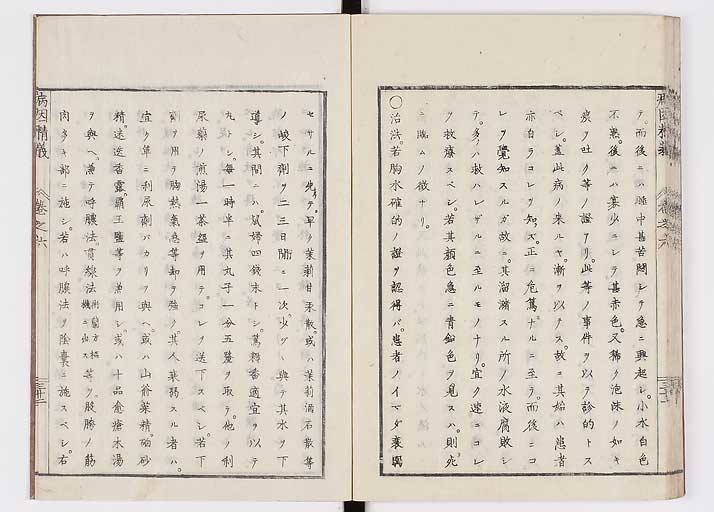 テ而後ニハ睡中甚苦悶シテ急ニ興起シ小水白色
不熟後ニハ寡少ニシテ甚赤色又稀ク泡沫ノ如キ
痰ヲ吐ク等ノ證アリ此等ノ事件ヲ以テ診的トス
ベシ蓋此病ノ来ルヤ漸ヲ以テス故ニ其始ハ患者
亦自ラコレヲ知ズ正ニ危篤ナルニ至テ而後ニコ
レヲ覺知スルガ故ニ其溜瀦スル所ノ水液腐敗シ
テ多ハ救ハレザルニ至ルモノナリ宜ク速ニコレ
ヲ救療スベシ若其顔色急ニ青鉛色ヲ見スハ則死
ニ臨ムノ徴ナリ
○治法若胸水確的ノ證ヲ認得バ患者ノイマダ衰憊
セザルニ先テ早ク茉莉甘汞散或ハ茉莉酒石散等
ノ峻下劑ヲ二三日間ニ一次少ヅヽ與テ其水ヲ下
導シ其間ニハ鼠婦四錢末トシ篤耨香適宜ヲ以テ
丸トシ毎一時半ニ其丸子一分五釐ヲ取テ他ノ利
尿藥ノ煎湯一茶盌ヲ用テコレヲ送下スベシ若下
劑ヲ用テ胸熱氣急等却テ強ク其人衰弱スル者ハ
宜ク單ニ利尿劑バカリヲ與ヘ或ハ山爺菜精硇砂
精迷迭香露覇王鹽等ヲ兼用シ或ハ十品愈瘡木湯
ヲ與ヘ兼テ呼膿法貫線法 等ヲ股膊ノ筋
肉多キ部ニ施シ若ハ呼膿法ヲ陰囊ニ施スベシ右
病因精義
卷之六